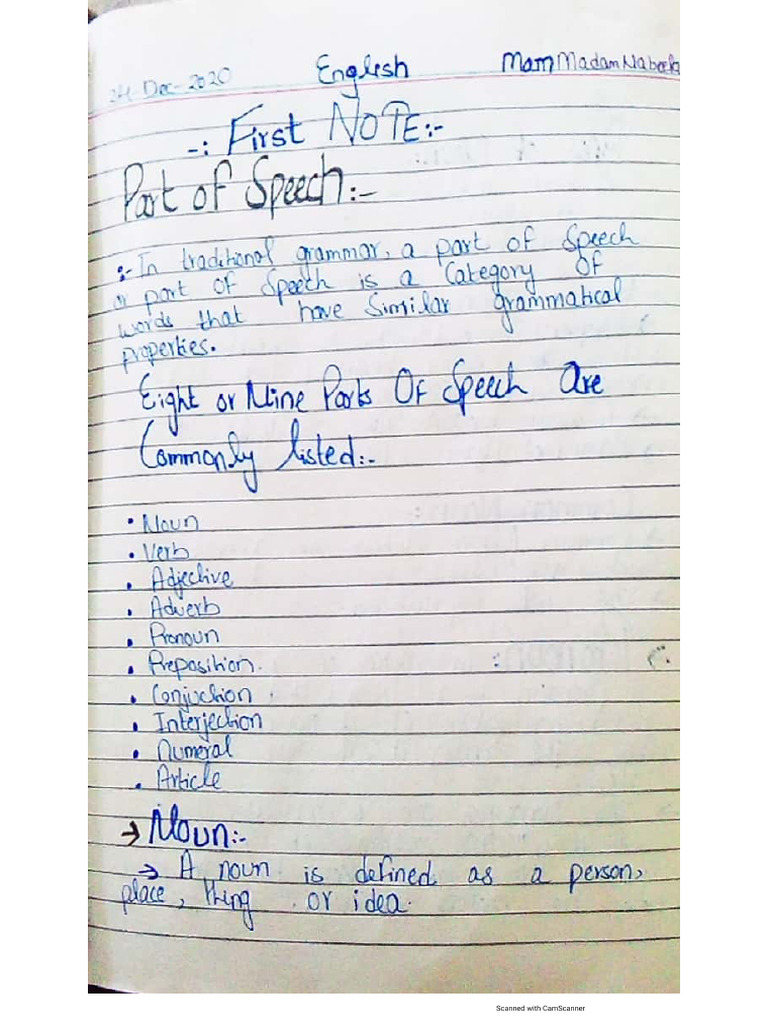 24-Dec-2020 English Mam Madam Nabeela
-: First NOTE:-
Part of Speech:-
:- In traditional grammar, a part of Speech
or part of Speech is a Category Of
words that have Similar grammatical
properties.
Eight or Nine Parts Of Speech Are
Commonly listed:-
• Noun
• Verb
• Adjective
• Adverb
• Pronoun
• Preposition.
• Conjuction
• Interjection
• Numeral
• Article
→ Noun:-
→ A noun is defined as a person,
place, thing or idea.
Scanned with CamScanner